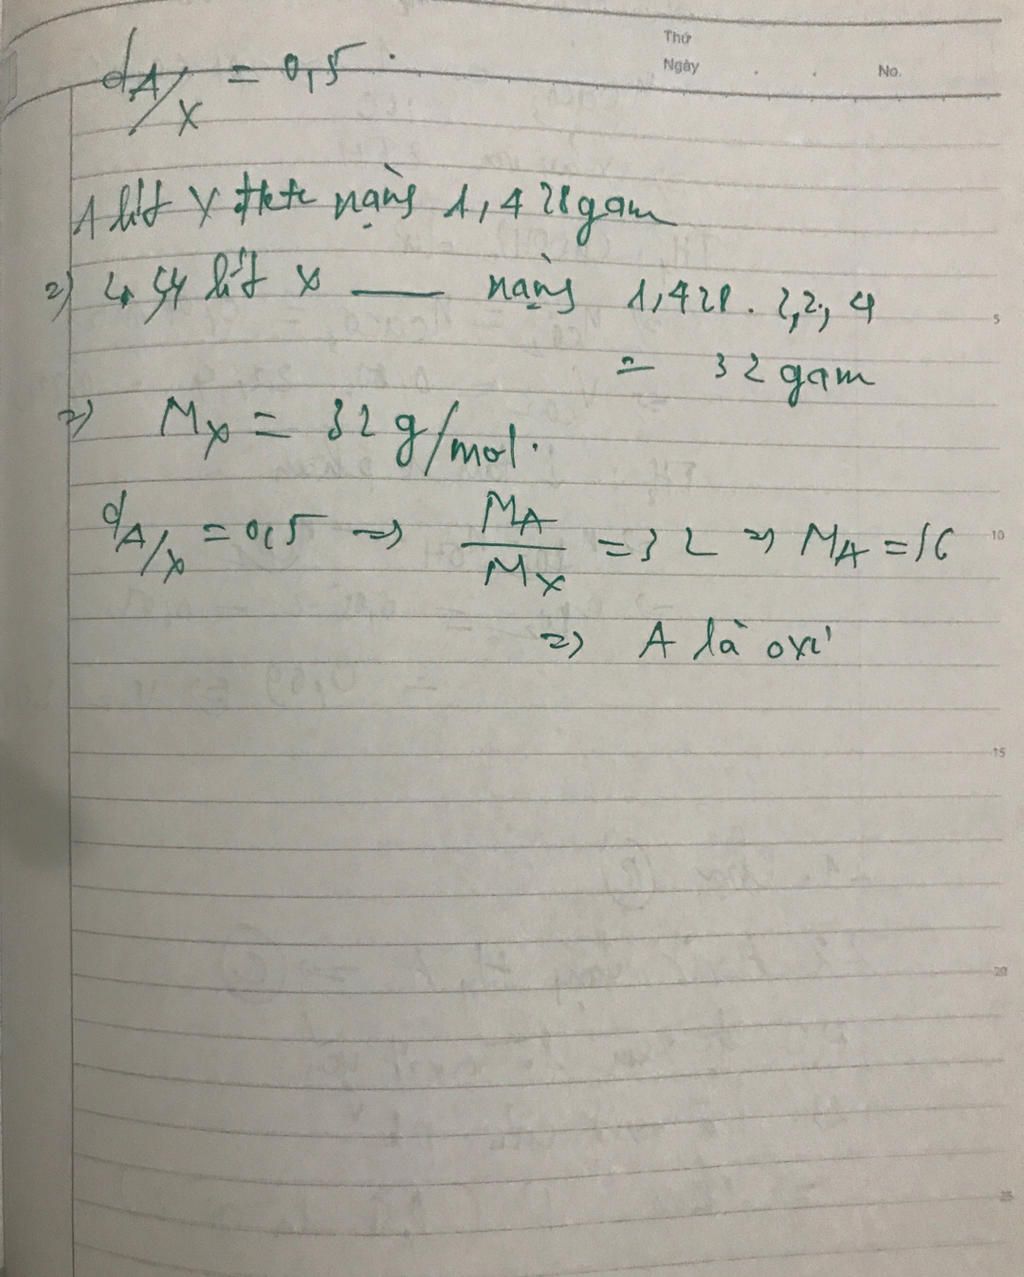 Thứ
Ngày
No.
d A/X = 0,5.
1 lít X đktc nặng 1,428 gam
=) lít X — nặng 1,428 . 22,4
= 32 gam
=) Mx = 32 g/mol.
d A/X = 0,5 => MA/MX = 32 => MA = 16
=> A là oxi
5
10
15
20
25